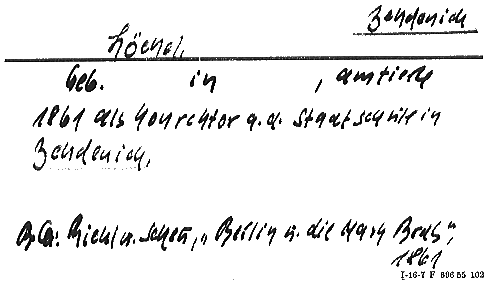 Zehdenick
Löchel,
Geb. in , amtierte
1861 als Konrektor a.d. Stadtschule in
Zehdenick.
Riehl u. Scheu, „Berlin u. die Mark Brdb",
1861
I-16-7 F 696 55 102